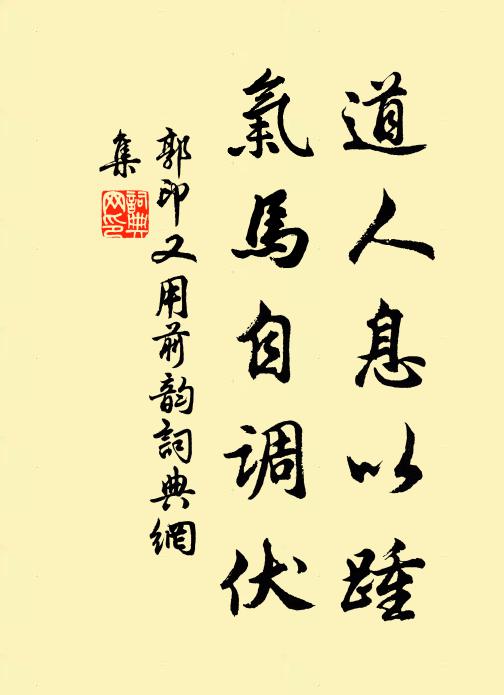 道人息以踵
氣馬自调伏
郭印又用前韵詞典網
集
詞典网印